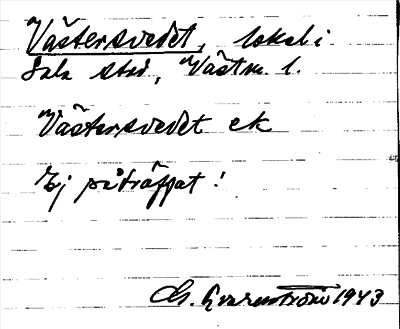 Västersvedet, lokal i
Sala stad, Västm. l.
Västersvedet ek
Ej påträffat!
1943